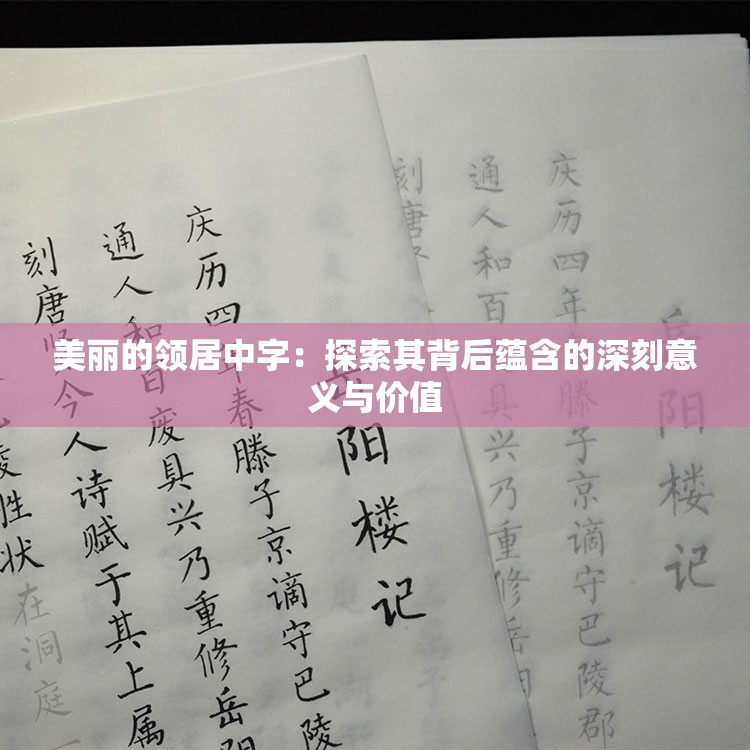 美丽的领居中字：探索其背后蕴含的深刻意
义与价值
岳阳楼记
庆历四年滕子京谪守巴陵郡
通人和百具兴乃重修岳阳
刻唐
阳楼记
庆历四年春滕子京谪守巴陵
通人和百废具兴乃重修岳阳
刻唐贤今人诗赋于其上属
胜状在洞庭一